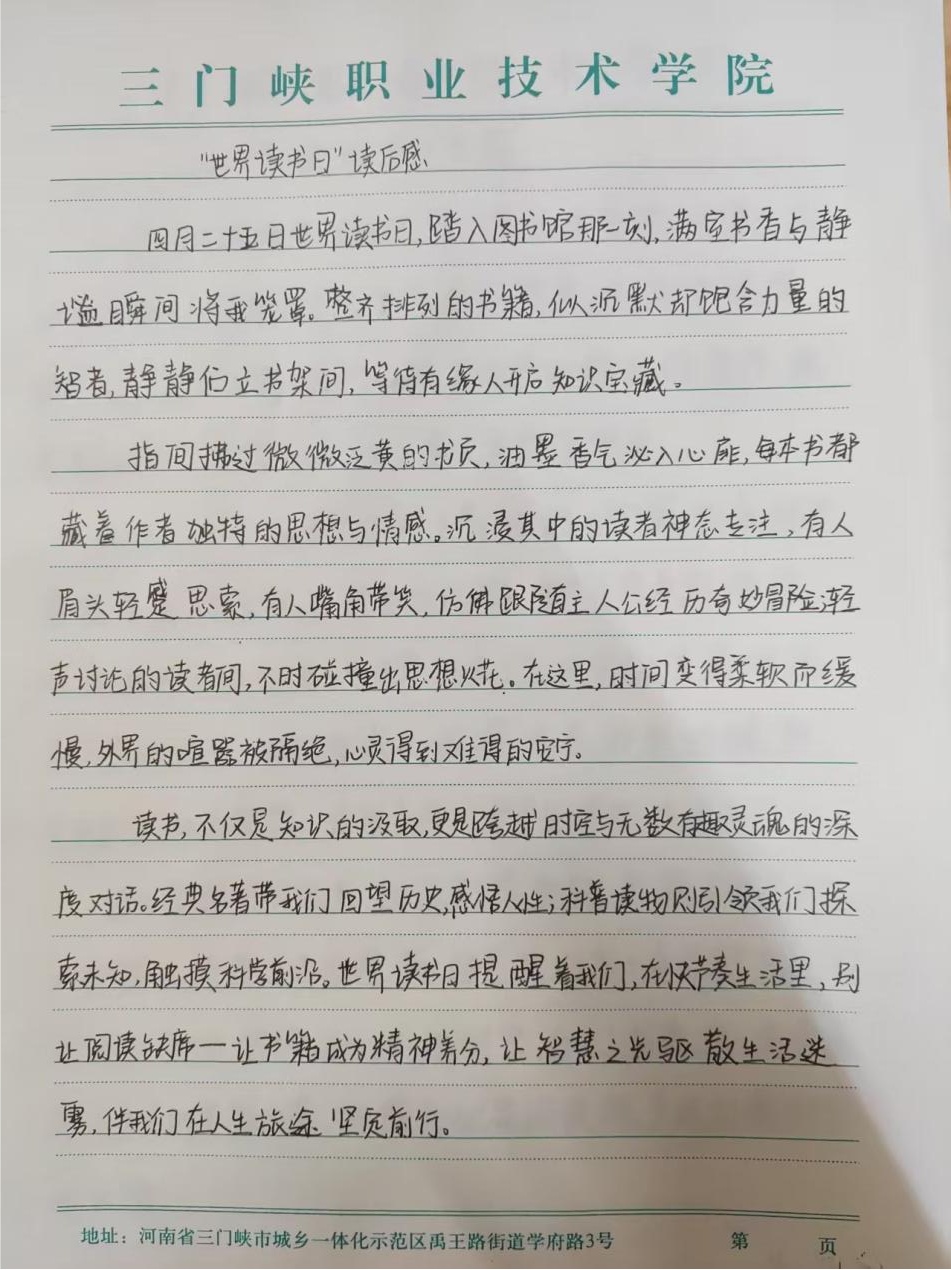 三门峡职业技术学院
“世界读书日”读后感
四月二十五日世界读书日,踏入图书馆那一刻,满室书香与静
谧瞬间将我笼罩。整齐排列的书籍,似沉默却饱含力量的
智者,静静伫立书架间,等待有缘人开启知识宝藏。
指间拂过微微泛黄的书页,油墨香气沁入心扉,每本书都
藏着作者独特的思想与情感。沉浸其中的读者神态专注,有人
眉头轻蹙思索,有人嘴角带笑,仿佛跟随主人公经历奇妙冒险;轻
声讨论的读者间,不时碰撞出思想火花。在这里,时间变得柔软而缓
慢,外界的喧嚣被隔绝,心灵得到难得的安宁。
读书,不仅是知识的汲取,更是跨越时空与无数有趣灵魂的深
度对话。经典名著带我们回望历史,感悟人性;科普读物则引领我们探
索未知,触摸科学前沿。世界读书日提醒着我们,在快节奏生活里,别
让阅读缺席—让书籍成为精神养分,让智慧之光驱散生活迷
雾,伴我们在人生旅途坚定前行。
地址:河南省三门峡市城乡一体化示范区禹王路街道学府路3号 第 页